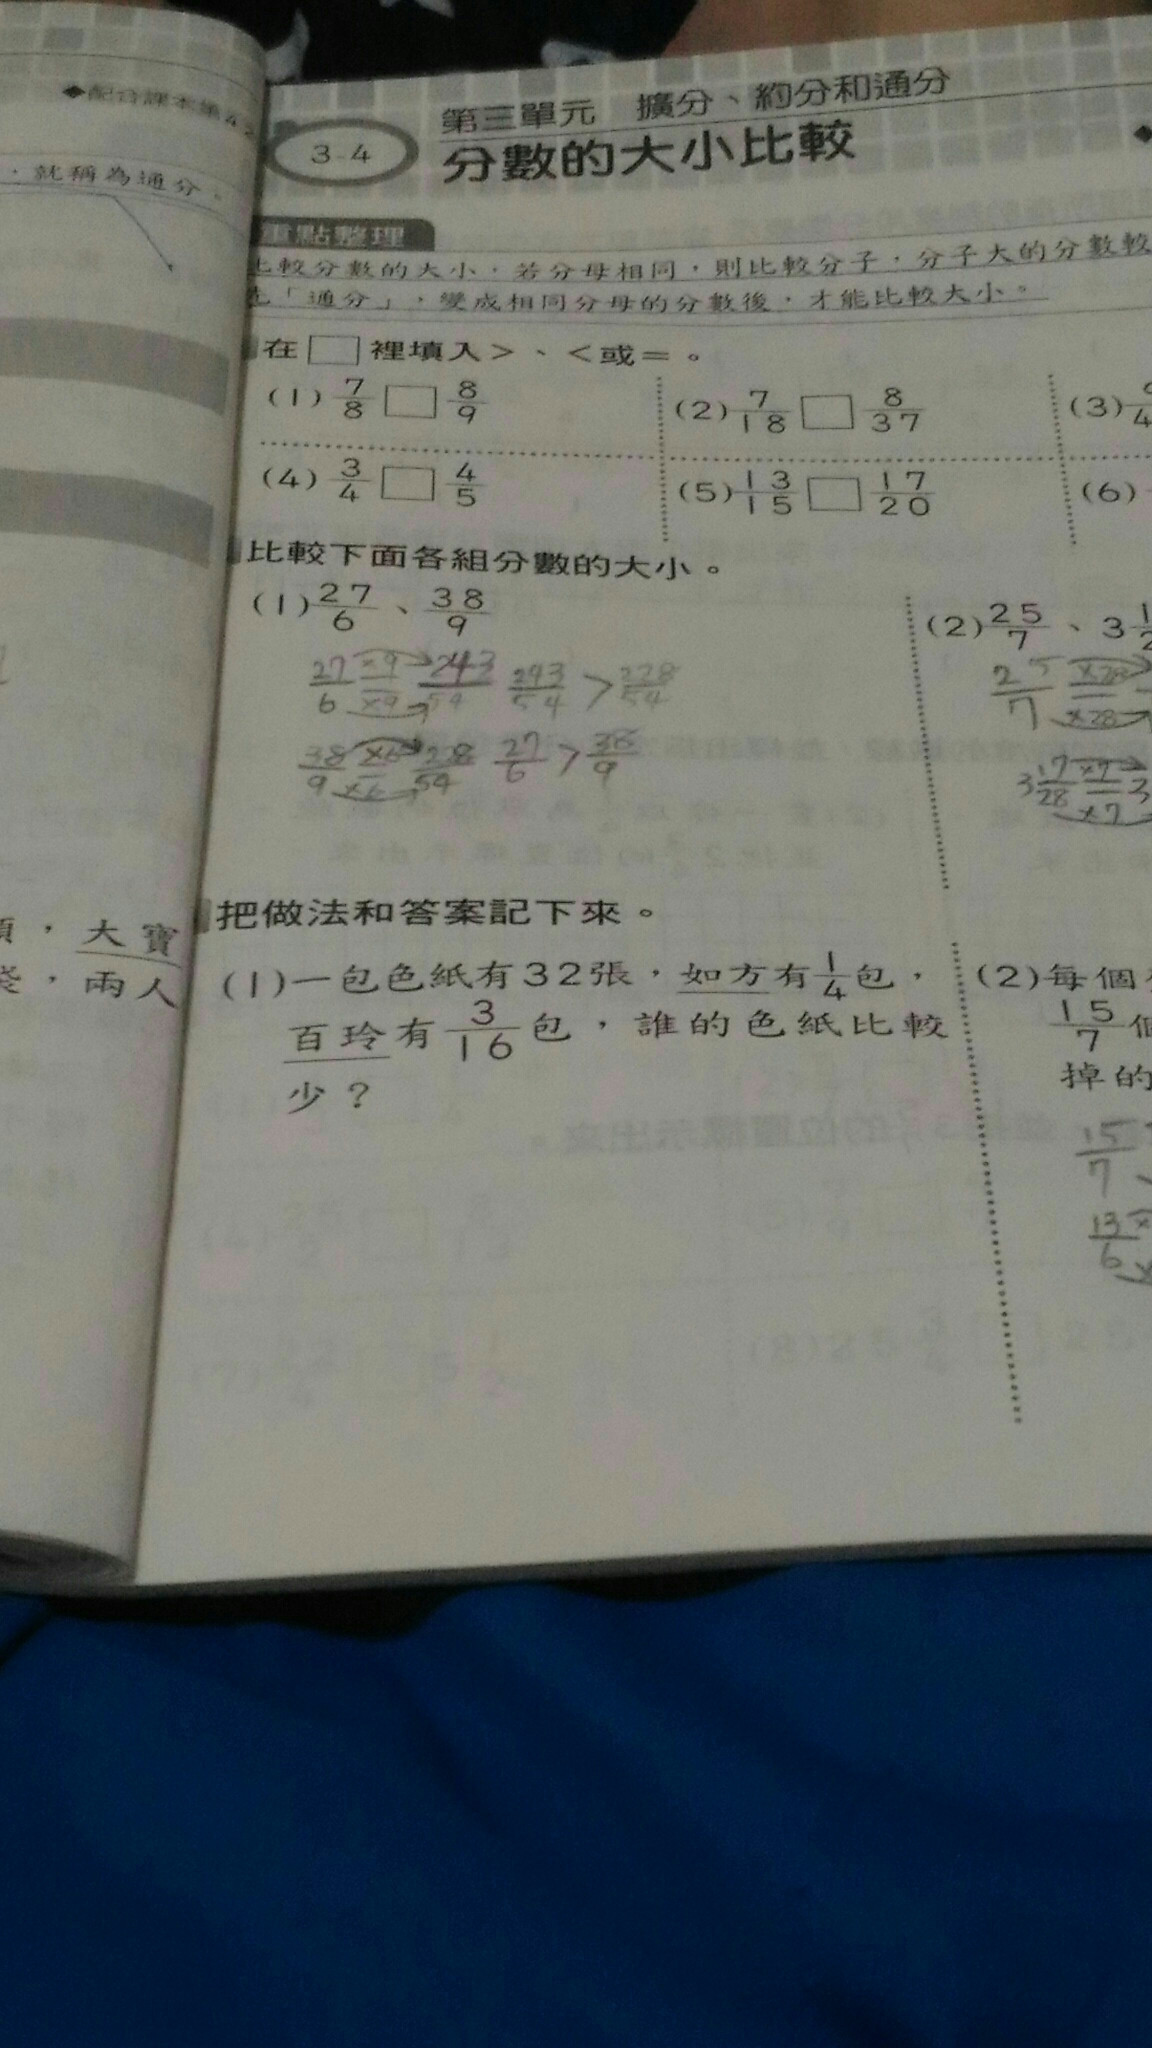 ◆配合課本第42
,就稱為通分。
大寶
,兩人
3-4
第三單元 擴分、約分和通分
分數的大小比較
重點整理
比較分數的大小,若分母相同,則比較分子,分子大的分數較
先「通分」,變成相同分母的分數後,才能比較大小。
在□裡填入>、<或=。
(1) 7/8 □ 8/9 (2) 7/18 □ 8/37 (3)
(4) 3/4 □ 4/5 (5) 13/15 □ 17/20 (6)
比較下面各組分數的大小。
(1) 27/6 、 38/9 (2) 25/7 、 3
27/6 ×9/×9 243/54 243/54 > 228/54 25/7 ×28/×28
38/9 ×6/×6 228/54 27/6 > 38/9 3 17/28 ×7/×7 3
把做法和答案記下來。
(1)一包色紙有32張,如方有 1/4 包, (2)每個
百玲有 3/16 包,誰的色紙比較 15/7 個
少? 掉的
15/7
13/6